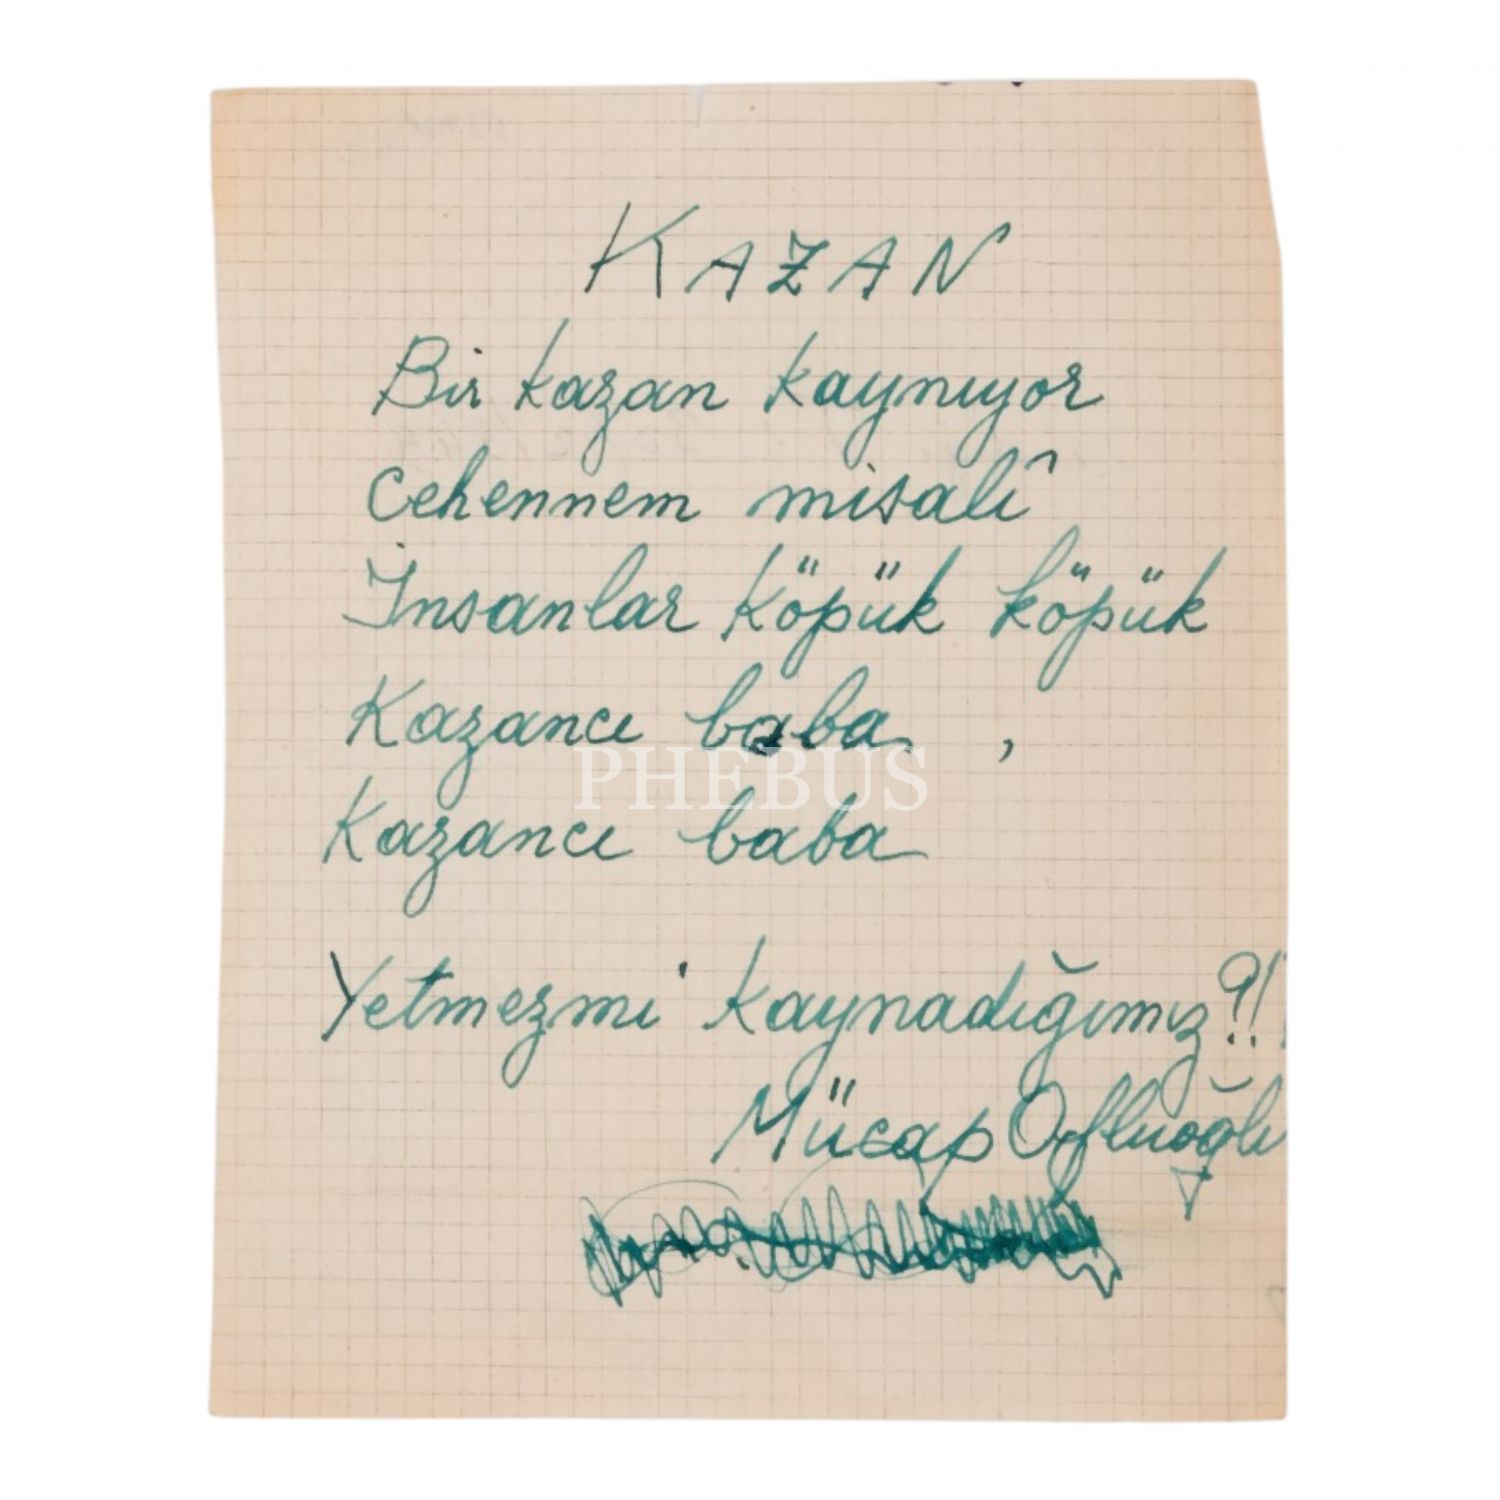 KAZAN
Bir kazan kaynıyor
cehennem misalî
İnsanlar köpük köpük
Kazancı baba,
PHEBUS
Kazancı baba
Yetmezmi kaynadığımız?!!
Mücap Ofluoğlu